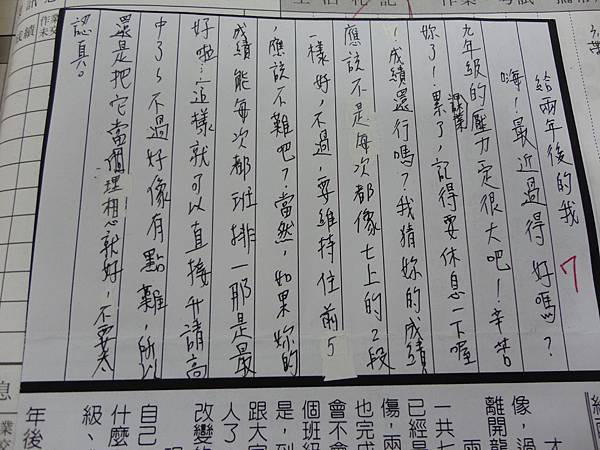 給兩年後的我
嗨！最近過得好嗎？
九年級的壓力一定很大吧！辛苦
妳了！課業累了，記得要休息一下喔
！成績還行嗎？我猜妳的成績
應該不是每次都像七上的2段
一樣好，不過，要維持住前5
，應該不難吧？當然，如果妳的
成績能每次都班排一那是最
好啦…這樣就可以直接升請高
中了～不過好像有點難，所以
還是把它當個理想就好，不要太
認真。
7
成績
作業
未交
息
像，過
離開龍
一共七
已經是
傷，兩
也完成
會不會
個班級
是，到
跟大家
人了
改變的
自己
什麼
級、
年後